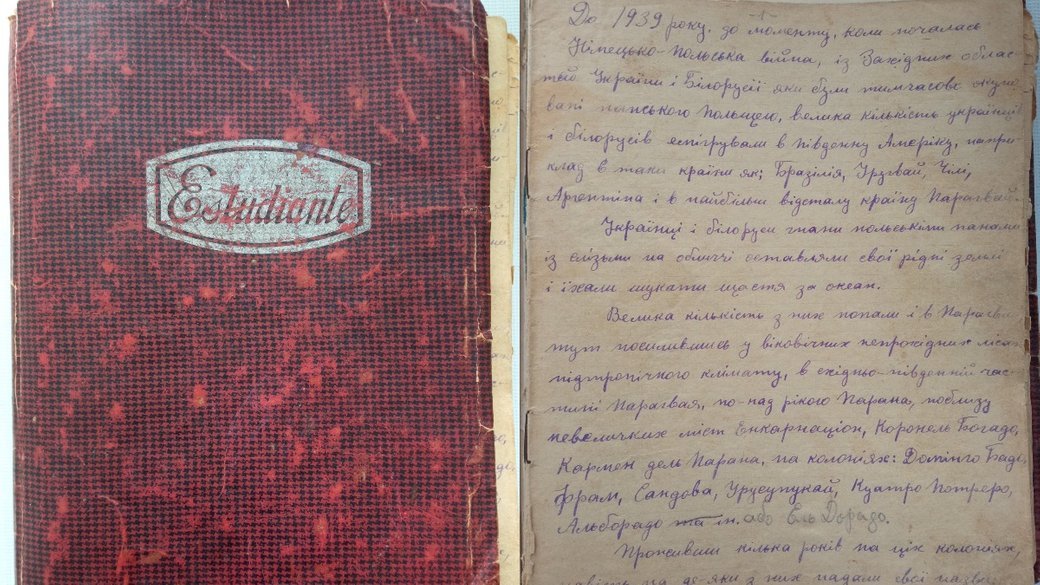 Estudiante
-1-
До 1939 року, до моменту, коли почалась
Німецько-польська війна, із Західних облас-
тей України і Білорусії які були тимчасово окупо
вані панською Польщею, велика кількість українців
і білорусів емігрували в Південну Америку, напри
клад в таки країни як; Бразілія, Уругвай, Чілі,
Аргентіна і в найбільш відсталу країну Парагвай.
Українці і білоруси гнані польськими панами
із слізьми на обличчі оставляли свої рідні землі
і їхали шукати щастя за океан.
Велика кількість з них попали і в Парагва
тут поселившись у віковічних непрохідних лісах
підтропічного клімату, в східньо-південній час-
тині Парагвая, по-над рікою Парана, поблизу
невеличких міст Енкарнаціон, Коронель Богадо,
Кармен дель Парана, на колоніях: Домінго Бадо,
Фрам, Сандова, Урусупукай, Куатро Потреро,
Альборадо та ін. або Ель Дорадо.
Проживши кілька років на ціх колоніях,
навіть на де-яки з них надали свої назви